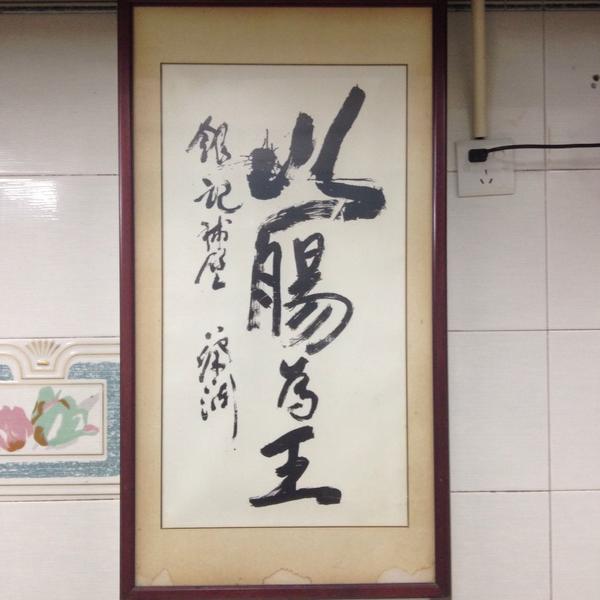 以腸為王
銀記補壁 蔡瀾